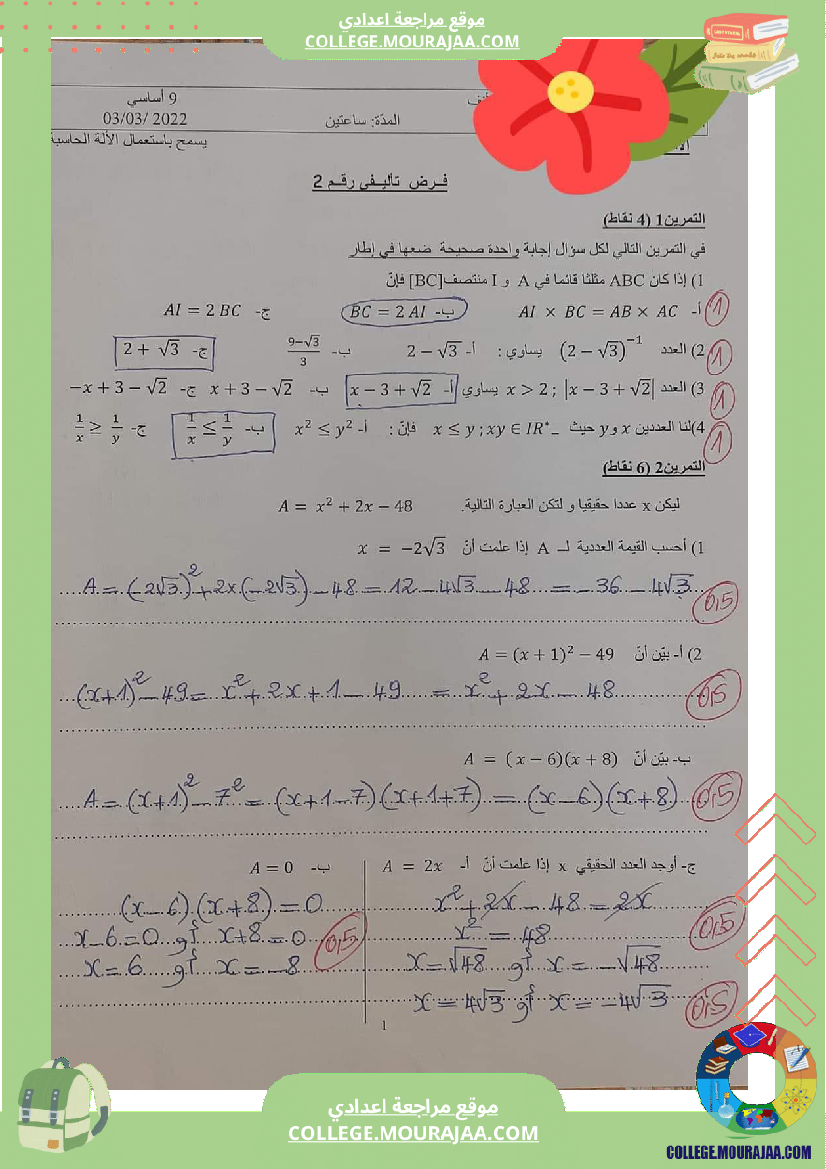 موقع مراجعة اعدادي
COLLEGE.MOURAJAA.COM
9 أساسي
03/03/ 2022
المدّة: ساعتين
يسمح باستعمال الآلة الحاسبة
فـرض تأليـفي رقـم 2
التمرين1 (4 نقاط)
في التمرين التالي لكل سؤال إجابة واحدة صحيحة ضعها في إطار
1) إذا كان ABC مثلثا قائما في A و I منتصف[BC] فإنّ
أ- AI × BC = AB × AC ب- BC = 2 AI ج- AI = 2 BC
1
2) العدد (2 − √3)⁻¹ يساوي : أ- 2 − √3 ب- (9−√3)/3 ج- 2 + √3
1
3) العدد |x − 3 + √2| ; x > 2 يساوي أ- x − 3 + √2 ب- x + 3 − √2 ج- −x + 3 − √2
1
4)لنا العددين x و y حيث x ≤ y ; xy ∈ IR*₋ فإنّ : أ- x² ≤ y² ب- 1/x ≤ 1/y ج- 1/x ≥ 1/y
1
التمرين2 (6 نقاط)
ليكن x عددا حقيقيا و لتكن العبارة التالية. A = x² + 2x − 48
1) أحسب القيمة العددية لـ A إذا علمت أنّ x = −2√3
A = (−2√3)² + 2×(−2√3) − 48 = 12 − 4√3 − 48 = −36 − 4√3
0,5
2) أ- بيّن أنّ A = (x + 1)² − 49
(x+1)² − 49 = x² + 2x + 1 − 49 = x² + 2x − 48
0,5
ب- بيّن أنّ A = (x − 6)(x + 8)
A = (x+1)² − 7² = (x+1−7)(x+1+7) = (x−6)(x+8)
0,5
ج- أوجد العدد الحقيقي x إذا علمت أنّ أ- A = 2x ب- A = 0
x² + 2x − 48 = 2x
x² = 48
0,5
x = √48 أو x = −√48
x = 4√3 أو x = −4√3
0,5
(x−6)(x+8) = 0
x−6=0 أو x+8=0
0,5
x = 6 أو x = −8
1
موقع مراجعة اعدادي
COLLEGE.MOURAJAA.COM
COLLEGE.MOURAJAA.COM